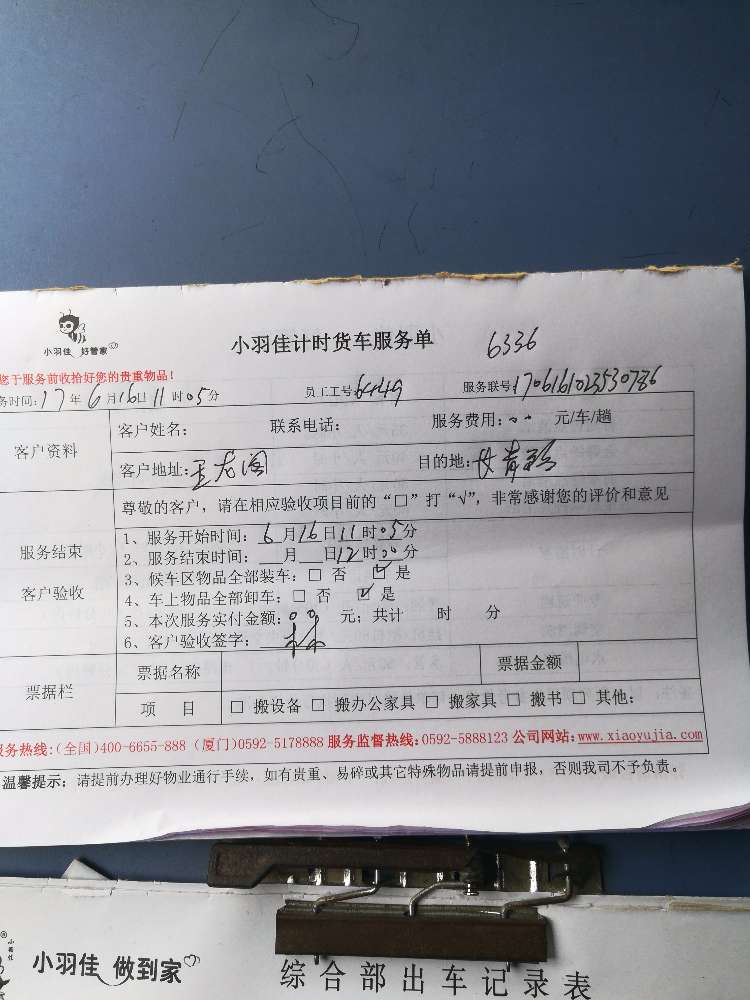 小羽佳 好管家
小羽佳计时货车服务单 6336
您于服务前收拾好您的贵重物品！
务时间:17年6月16日11时05分 员工工号:6449 服务联号:1706161023530786
客户资料
客户姓名： 联系电话： 服务费用: 元/车/趟
客户地址: 目的地:
尊敬的客户，请在相应验收项目前的“□”打“√”，非常感谢您的评价和意见
服务结束
客户验收
1、服务开始时间：6月16日11时05分
2、服务结束时间： 月 日12时00分
3、候车区物品全部装车：□ 否 ☑ 是
4、车上物品全部卸车：□ 否 ☑ 是
5、本次服务实付金额: 元；共计 时 分
6、客户验收签字：
票据栏
票据名称 票据金额
项 目 □ 搬设备 □ 搬办公家具 □ 搬家具 □ 搬书 □ 其他:
服务热线:(全国)400-6655-888 (厦门)0592-5178888 服务监督热线:0592-5888123 公司网站:www.xiaoyujia.com
温馨提示：请提前办理好物业通行手续，如有贵重、易碎或其它特殊物品请提前申报，否则我司不予负责。
小羽佳 做到家
综合部出车记录表